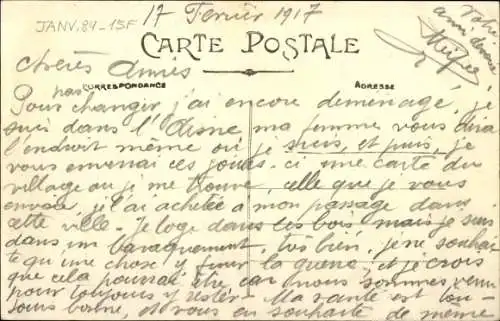 JANV. 84 - 15F
17 Fevrier 1917
CARTE POSTALE
Votre
ami devoué
Chères Amies
CORRESPONDANCE
ADRESSE
pas
Pour changer, j'ai encore demenagé, je
suis dans l'Aisne, ma femme vous dira
l'endroit même ou je suis, et puis, je
vous enverrai ces jours-ci une carte du
village ou je me trouve, celle que je vous
envoie, je l'ai achetée a mon passage dans
cette ville. Je loge dans les bois mais je suis
dans un baraquement, tres bien, je ne souhai
te qu'une chose y finir la guerre, et je crois
que cela pourrait être, car nous sommes venu
pour toujours y rester. Ma santé est tou-
jours bonne, et vous en souhaite de même